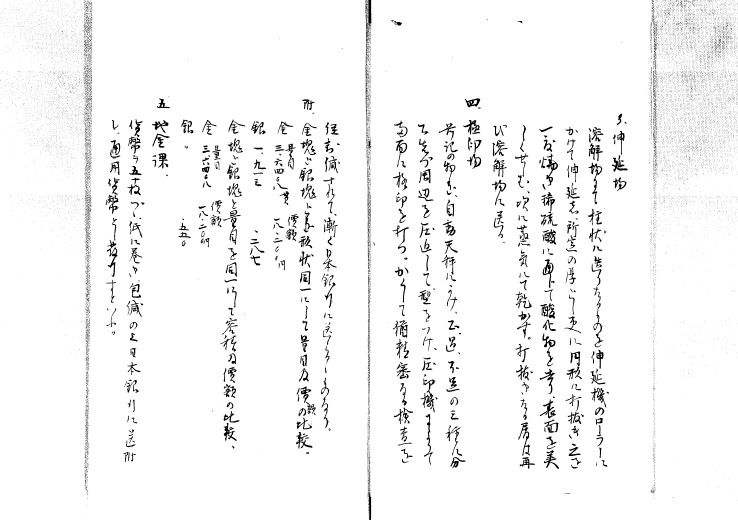 3、伸延場
溶解場にて桂状に造りたるものを伸延機のローラーに
かけて伸延し、所定の厚いし更に円形に打抜き之を
一度焼き稀硫酸に通して酸化物を去り、表面を美
しくせしむ、次に蒸気にて乾かす。打抜きたる屑は再
び溶解場に送る。
四、極印場
前記の物を、自動天秤にかけ、正、過、不足の三種に分
ち、先づ周辺を圧迫して型をつけ、圧印機によりて
両面に極印を打つ。かくして猶精密なる検査を
経て減すれて、漸く日本銀行に送らるるものなり。
附、金塊と銀塊と形状同一にして量目及價額の比較。
量目 價額
金 三六四〇八貫 一八二〇〇円
銀 一、九一三 二八七
金塊と銀塊と量目を同一にして容積及價額の比較、
量目 價額
金 三六四〇八 一八、二〇〇円
銀 〃 五五〇
五 地金課
貨幣を五十枚づつ紙に巻き包緘の上日本銀行に送附
し、通用貨幣として発行すといふ。